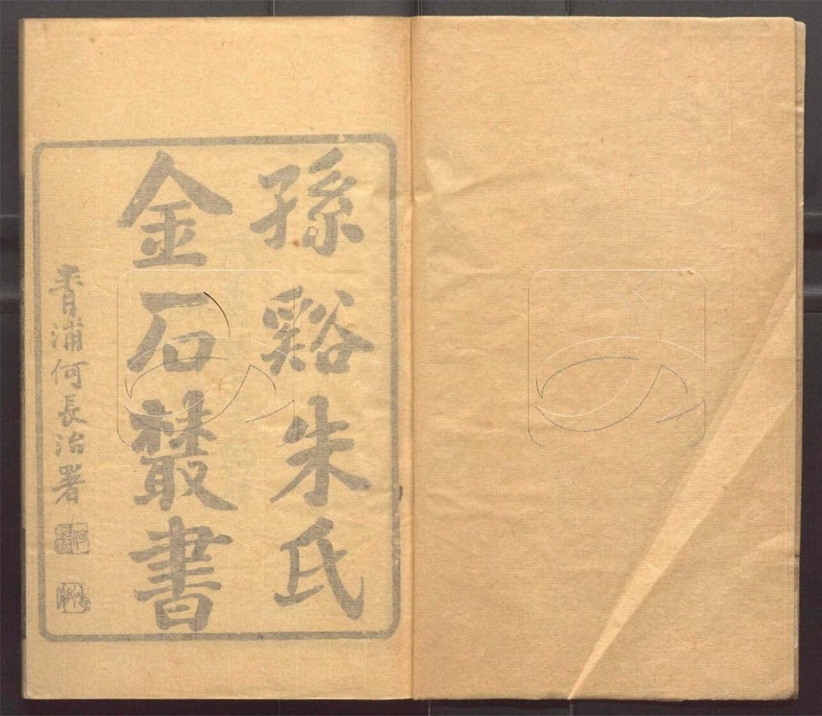 孫谿朱氏
金石叢書
青浦何長治署